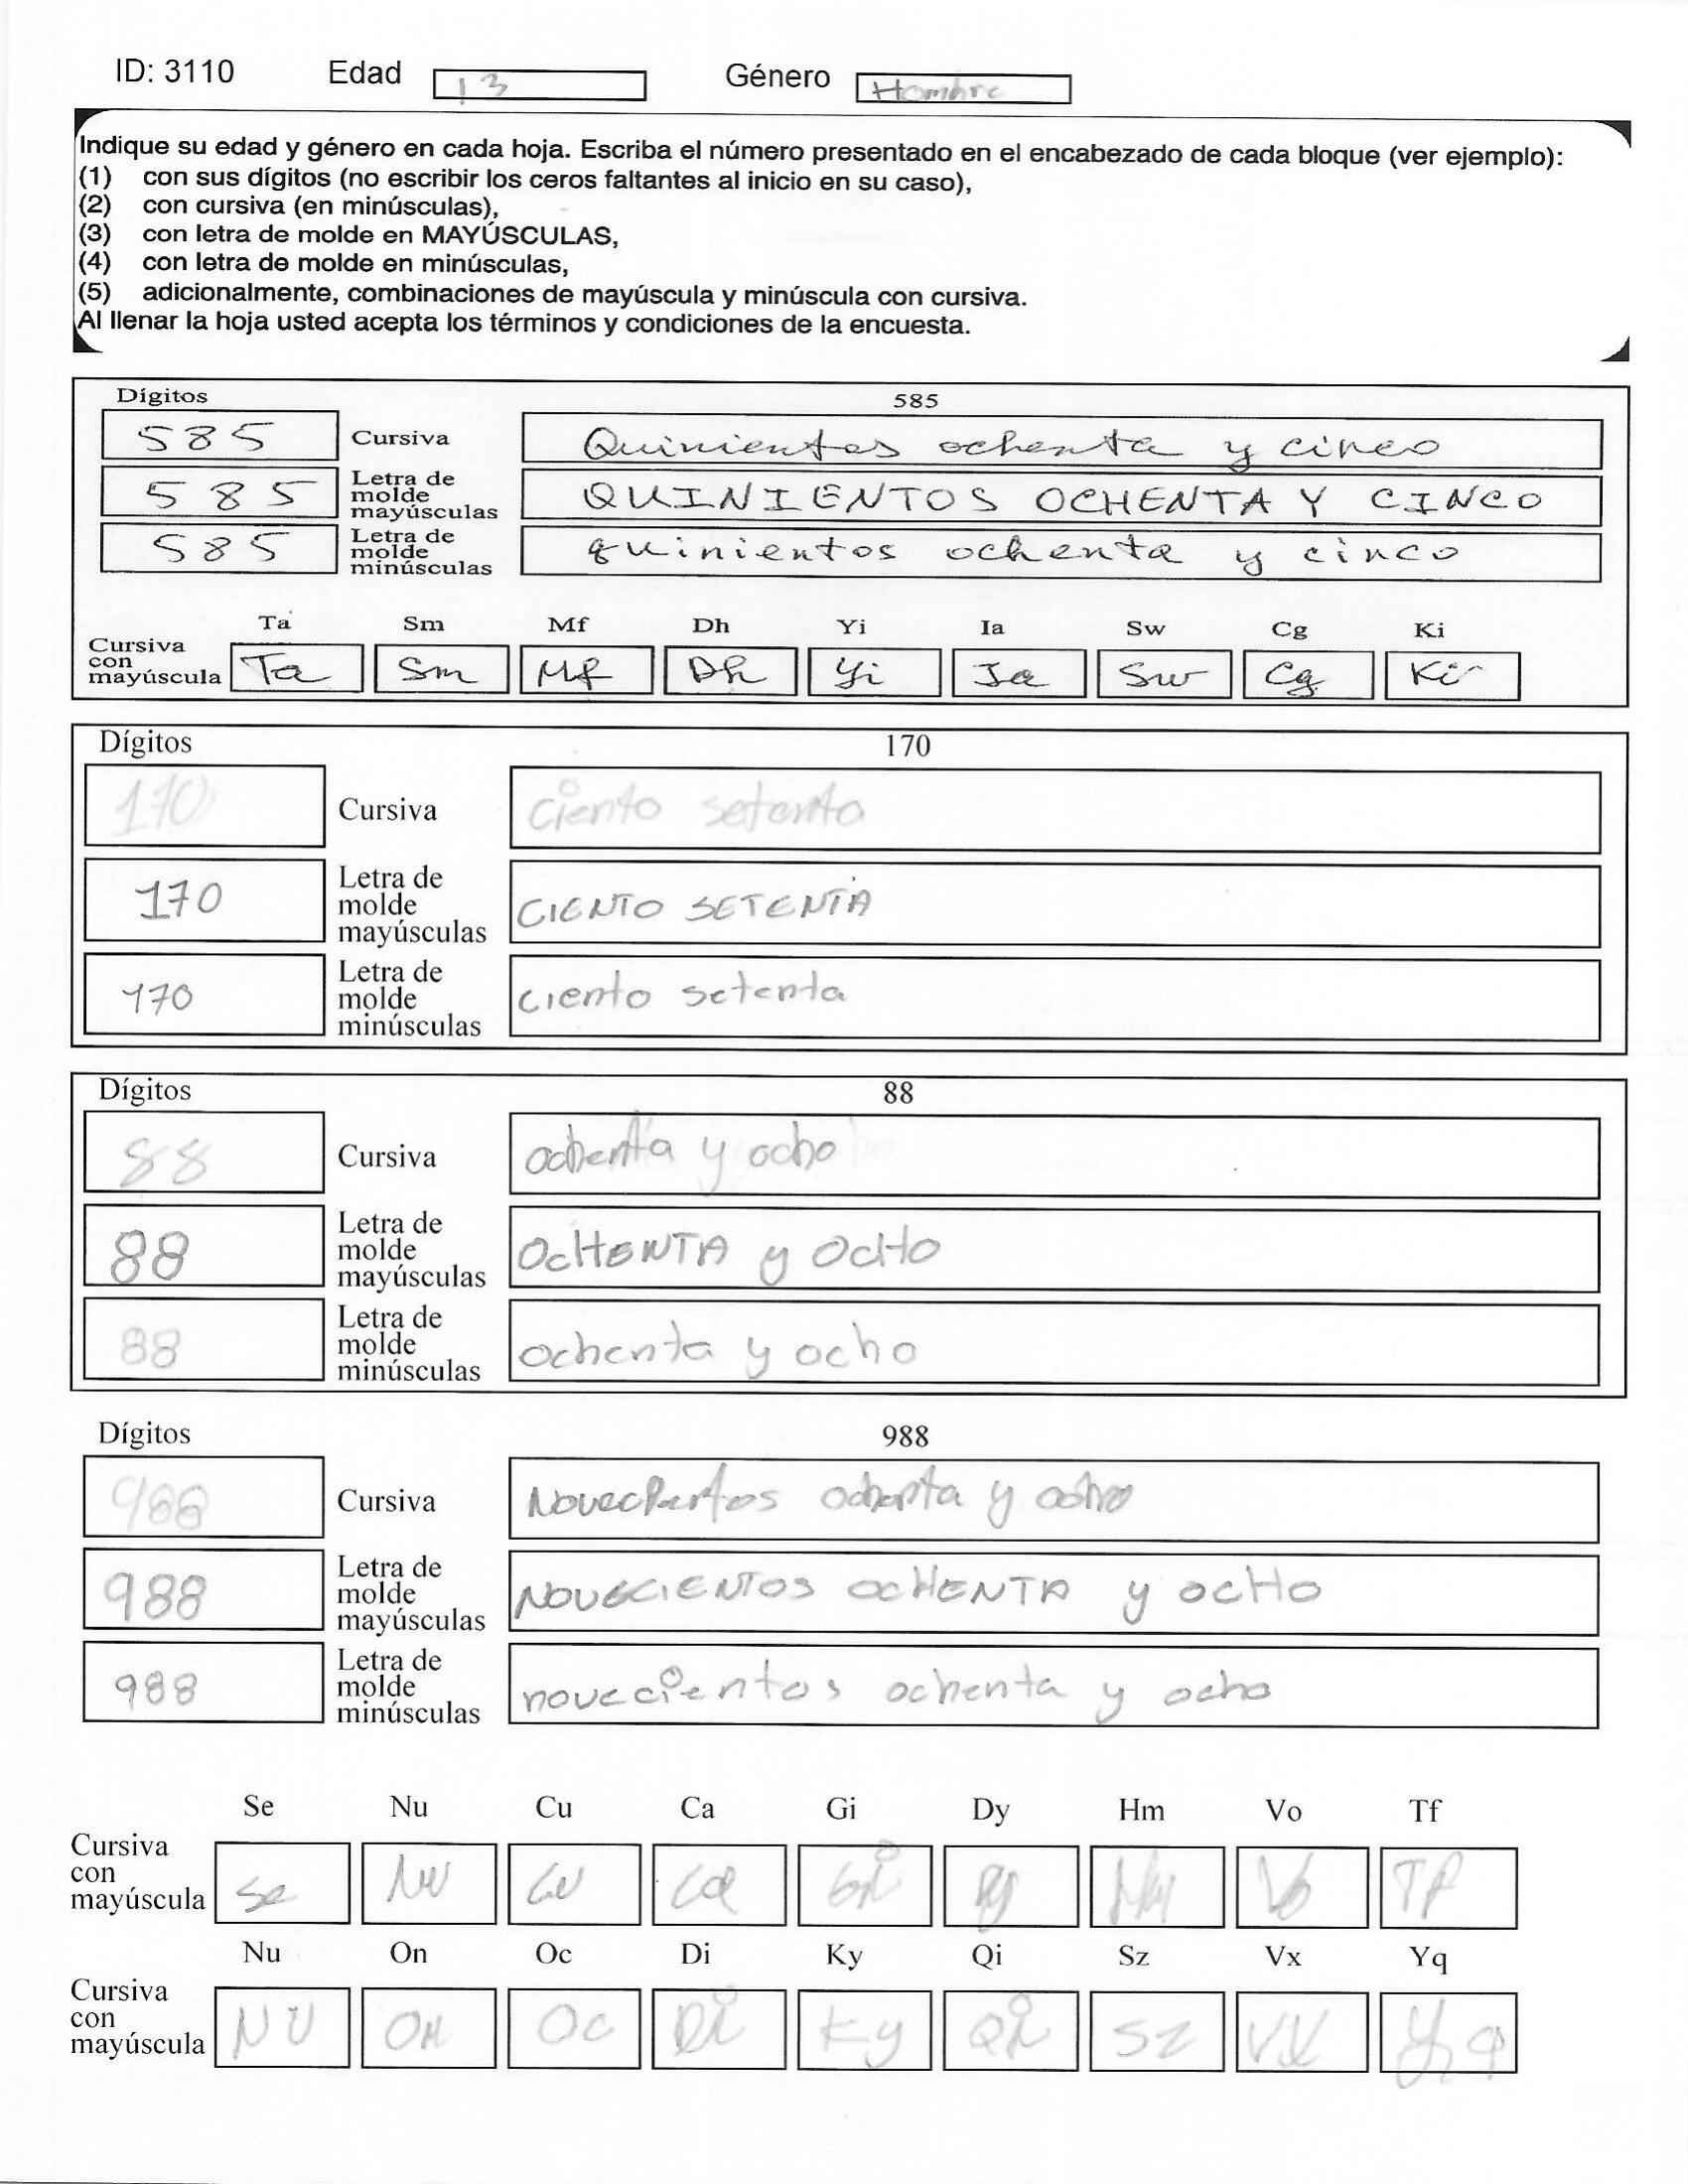 ID: 3110 Edad 13 Género Hombre
Indique su edad y género en cada hoja. Escriba el número presentado en el encabezado de cada bloque (ver ejemplo):
(1) con sus dígitos (no escribir los ceros faltantes al inicio en su caso),
(2) con cursiva (en minúsculas),
(3) con letra de molde en MAYÚSCULAS,
(4) con letra de molde en minúsculas,
(5) adicionalmente, combinaciones de mayúscula y minúscula con cursiva.
Al llenar la hoja usted acepta los términos y condiciones de la encuesta.
Dígitos 585
585 Cursiva Quinientos ochenta y cinco
585 Letra de molde mayúsculas QUINIENTOS OCHENTA Y CINCO
585 Letra de molde minúsculas quinientos ochenta y cinco
Ta Sm Mf Dh Yi Ia Sw Cg Ki
Cursiva con mayúscula Ta Sm Mf Dh Yi Ia Sw Cg Ki
Dígitos 170
170 Cursiva ciento setenta
170 Letra de molde mayúsculas CIENTO SETENTA
170 Letra de molde minúsculas ciento setenta
Dígitos 88
88 Cursiva ochenta y ocho
88 Letra de molde mayúsculas OcHENTA y OcHo
88 Letra de molde minúsculas ochenta y ocho
Dígitos 988
988 Cursiva Novecientos ochenta y ocho
988 Letra de molde mayúsculas NOVECIENTOS OCHENTA y ocHo
988 Letra de molde minúsculas novecientos ochenta y ocho
Se Nu Cu Ca Gi Dy Hm Vo Tf
Cursiva con mayúscula Se Nu Cu Ca Gi Dy Hm Vo Tf
Nu On Oc Di Ky Qi Sz Vx Yq
Cursiva con mayúscula NU On Oc Di Ky Qi Sz Vx Yq